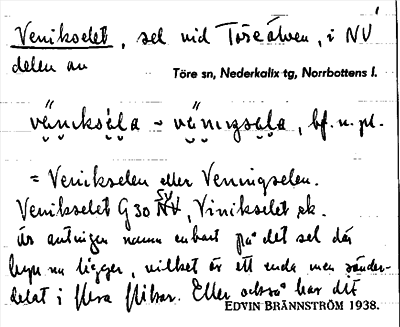 Venikselet, sel vid Töreälven, i NV
delen av
Töre sn, Nederkalix tg, Norrbottens l.
vä̬niksa̬la - vä̬ningsa̬la, bf. n. pl.
= Venikselen eller Venningselen.
Venikselet G30 SV, Vinikselet ek.
Är antingen namn enbart på det sel där
byn nu ligger, vilket är ett enda men sönder-
delat i flera flikar. Eller också har det
EDVIN BRÄNNSTRÖM 1938.